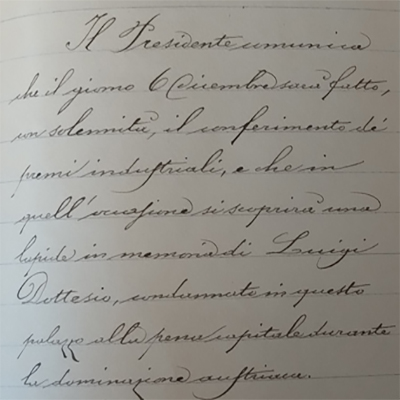 Il Presidente comunica
che il giorno 6 Dicembre sarà fatto,
con solennità, il conferimento de'
premi industriali, e che in
quell'occasione si scoprirà una
lapide in memoria di Luigi
Dottesio, condannato in questo
palazzo alla pena capitale durante
la dominazione austriaca.